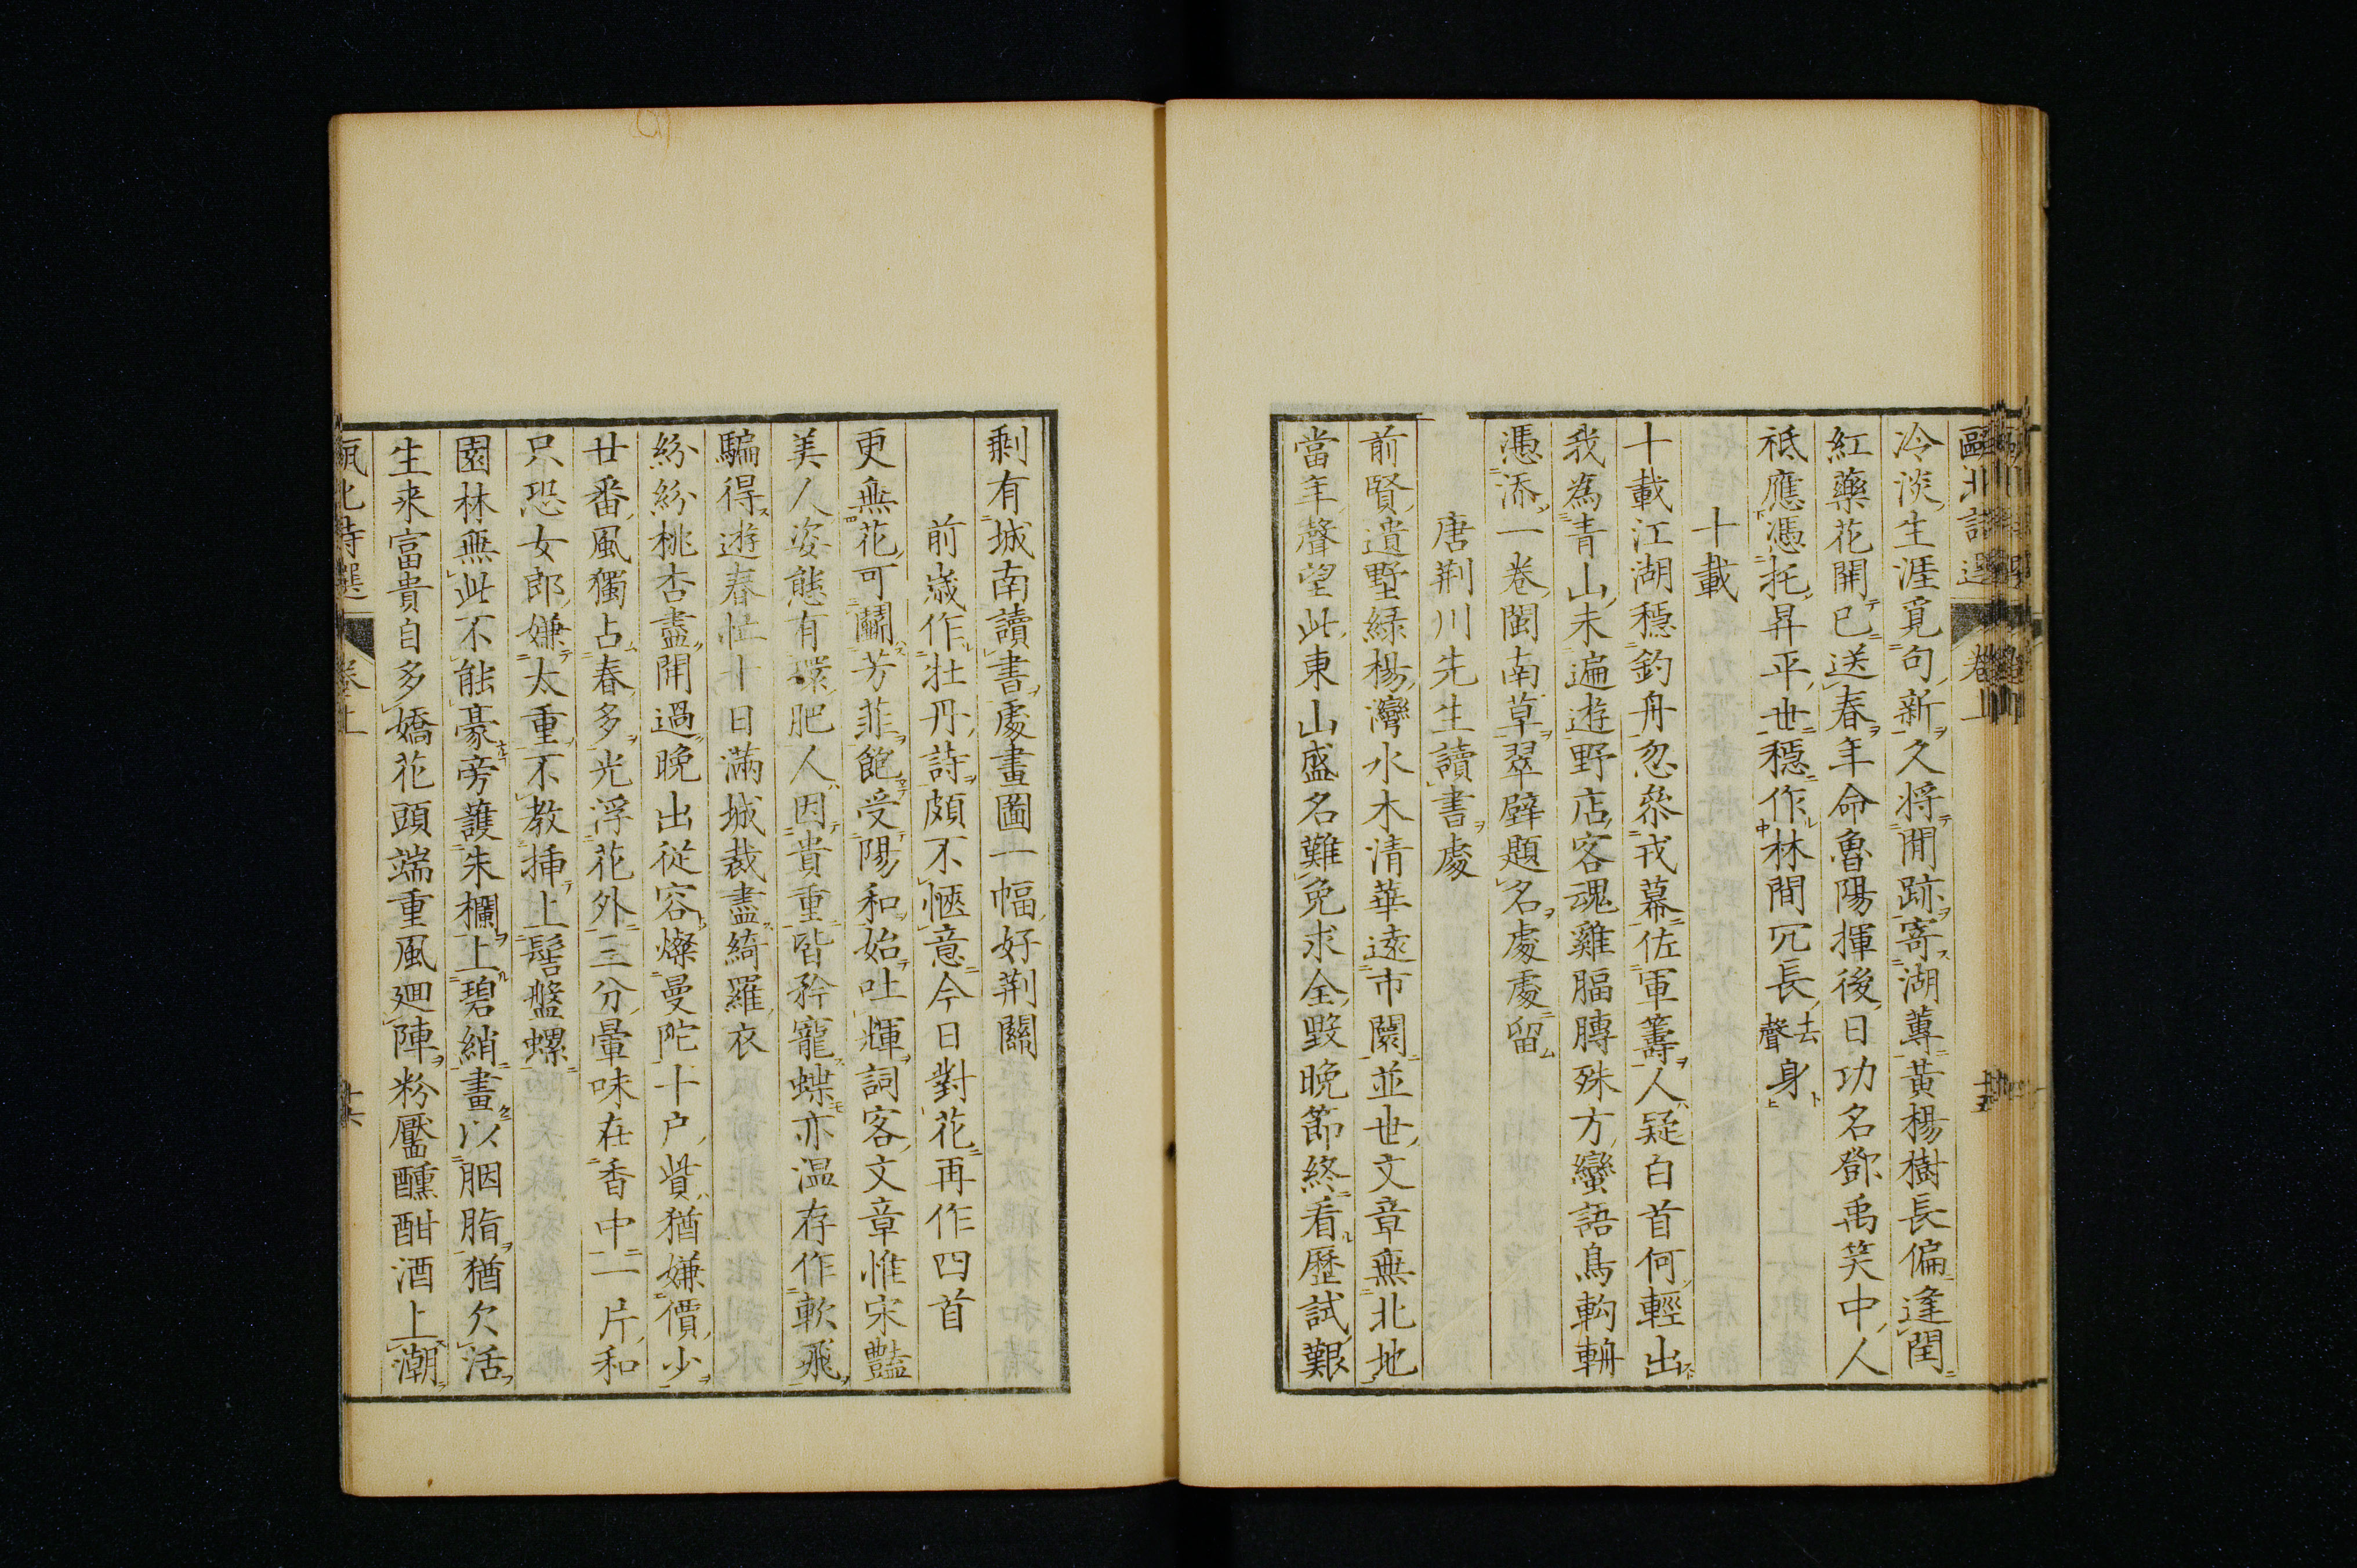 冷淡生涯覓句新久將閒跡寄湖蓴黃楊樹長偏逢閏
紅藥花開已送春年命魯陽揮後日功名鄧禹笑中人
祗應憑托昇平世穩作林間冗長去聲身
十載
十載江湖穩釣舟忽叅戎幕佐軍籌人疑白首何輕出
我為青山未遍遊野店客魂雞腷膊殊方蠻語鳥輈
憑添一卷閩南草翠壁題名處處留
唐荆川先生讀書處
前賢遺墅緑楊灣水木清華遠市闤並世文章無北地
當年聲望此東山盛名難免求全毀晚節終看歷試艱
剩有城南讀書處畫圖一幅好荆關
前歲作牡丹詩頗不愜意今日對花再作四首
更無花可鬬芳菲飽受陽和始吐輝詞客文章惟宋豔
美人姿態有環肥人因貴重皆矜寵蝶亦温存作軟飛
騙得遊春忙十日滿城裁盡綺羅衣
紛紛桃杏盡開過晚出從容爛曼陀十户貲猶嫌價少
廿番風獨占春多光浮花外三分暈味在香中一片和
只恐女郎嫌太重不教挿上髻盤螺
園林無此不能豪旁護朱欄上碧綃畫以胭脂猶欠活
生来富貴自多嬌花頭端重風廻陣粉靨醺酣酒上潮